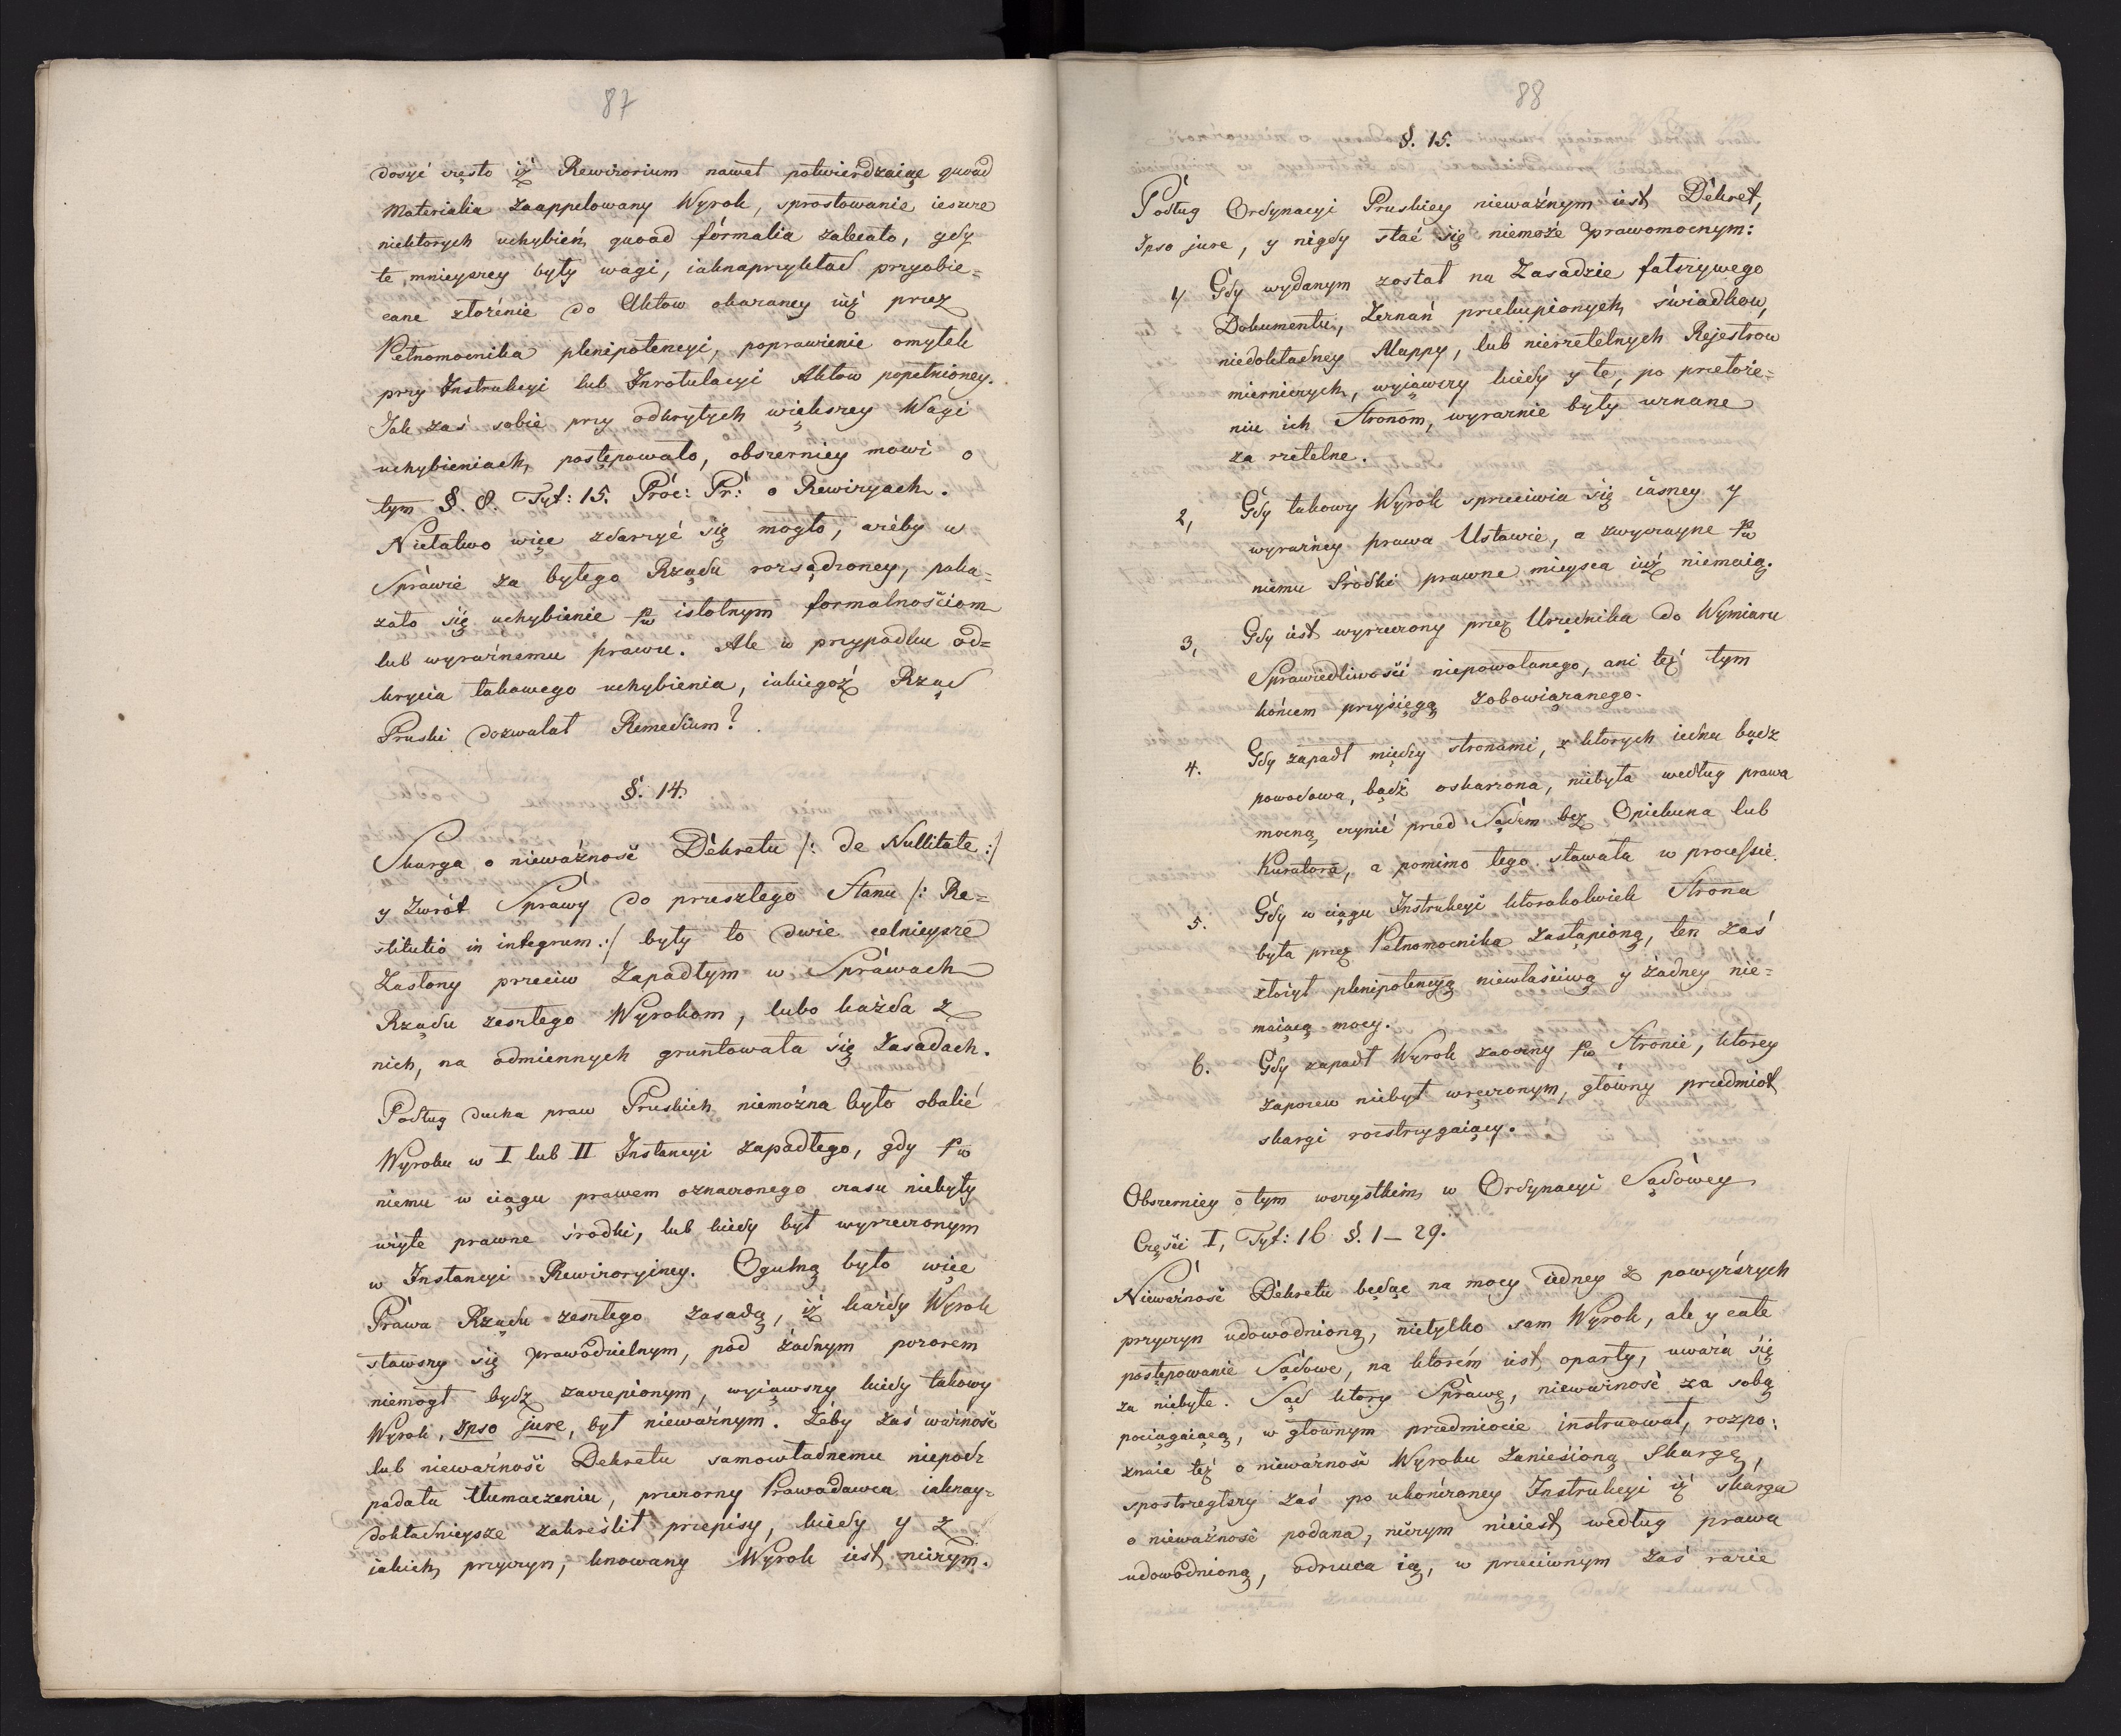 87
dosyć często iż Rewizorium nawet potwierdzaiąc quoad
Materialia zaappelowany Wyrok, sprostowanie ieszcze
niektorych uchybień quoad formalia zalecało, gdy
te mnieyszey były wagi, iaknaprzykład przyobie-
cane złożenie do Aktow okazaney iuż przez
Pełnomocnika plenipotencyi, poprawienie omyłek
przy Instrukcyi lub Inrotulacyi Aktow popełnioney.
Jak zaś sobie przy odkrytych większey Wagi
uchybieniach postępowało, obszerniey mowi o
tym §. 8. Tyt: 15. Proc: Pr: o Rewizyach.
Niełatwo więc zdarzyć się mogło, ażeby w
Sprawie za byłego Rządu rozsądzoney, poka-
zało się uchybienie pw istotnym formalnościom
lub wyraźnemu prawu. Ale w przypadku od-
krycia takowego uchybienia, iakiegoż Rząd
Pruski dozwalał Remedium?
§. 14.
Skarga o nieważność Dekretu /: de Nullitate :/
y Zwrot Sprawy do przeszłego Stanu /: Re-
stitutio in integrum :/ były to dwie celnieysze
Zasłony przeciw Zapadłym w Sprawach
Rządu zeszłego Wyrokom, lubo każda z
nich, na odmiennych gruntowała się Zasadach.
Podług ducha praw Pruskich niemożna było obalić
Wyroku w I lub II Instancyi zapadłego, gdy pw
niemu w ciągu prawem oznaczonego czasu niebyły
użyte prawne środki, lub kiedy był wyrzeczonym
w Instancyi Rewizoryiney. Ogulną było więc
Prawa Rządu zeszłego zasadą, iż każdy Wyrok
stawszy się prawodzielnym, pod żadnym pozorem
niemógł bydz zaczepionym, wyiąwszy kiedy takowy
Wyrok, ipso jure, był nieważnym. Żeby zaś ważność
lub nieważność Dekretu samowładnemu niepod-
padała tłumaczeniu, przezorny Prawodawca iaknay-
dokładnieysze zakreślił przepisy, kiedy y z
iakich przyczyn, knowany Wyrok iest niczym.
88
§. 15.
Podług Ordynacyi Pruskiey nieważnym iest Dekret,
Ipso jure, y nigdy stać się niemoże prawomocnym:
1, Gdy wydanym został na Zasadzie fałszywego
Dokumentu, Zeznań przekupionych świadkow,
niedokładney Mappy, lub nierzetelnych Rejestrow
mierniczych, wyiąwszy kiedy y te, po przełoże-
niu ich Stronom, wyraznie były uznane
za rzetelne.
2, Gdy takowy Wyrok sprzeciwia się iasney y
wyraźney prawa Ustawie, a zwyczayne pw
niemu Środki prawne mieysca iuż niemaią.
3, Gdy iest wyrzeczony przez Urzędnika do Wymiaru
Sprawiedliwości niepowołanego, ani też tym
końcem przysięgą zobowiązanego.
4. Gdy zapadł między stronami, z ktorych iedna bądz
powodowa, bądź oskarzona, niebyła według prawa
mocną czynić przed Sądem bez Opiekuna lub
Kuratora, a pomimo tego stawała w processie.
5. Gdy w ciągu Instrukcyi ktorakolwiek Strona
była przez Pełnomocnika Zastąpioną, ten zaś
złożył plenipotencyą niewłaściwą y żadney nie-
maiącą mocy.
6. Gdy zapadł Wyrok zaoczny pw Stronie, ktorey
zapozew niebył wręczonym, główny przedmiot
skargi rozstrzygaiący.
Obszerniey o tym wszystkim w Ordynacyi Sądowey
Części I, Tyt: 16 §. 1 – 29.
Nieważność Dekretu będąc na mocy iedney z powyższych
przyczyn udowodnioną, nietylko sam Wyrok, ale y całe
postępowanie Sądowe, na ktorém iest oparty, uważa się
za niebyłe. Sąd ktory Sprawę, nieważność za sobą
pociągaiącą, w głównym przedmiocie instruował, rozpo:
znaie też o nieważność Wyroku Zaniesioną Skargę,
spostrzegłszy zaś po ukończoney Instrukcyi iż skarga
o nieważność podana, niczym nieiest według prawa
udowodnioną, odrzuca ią, w przeciwnym zaś razie